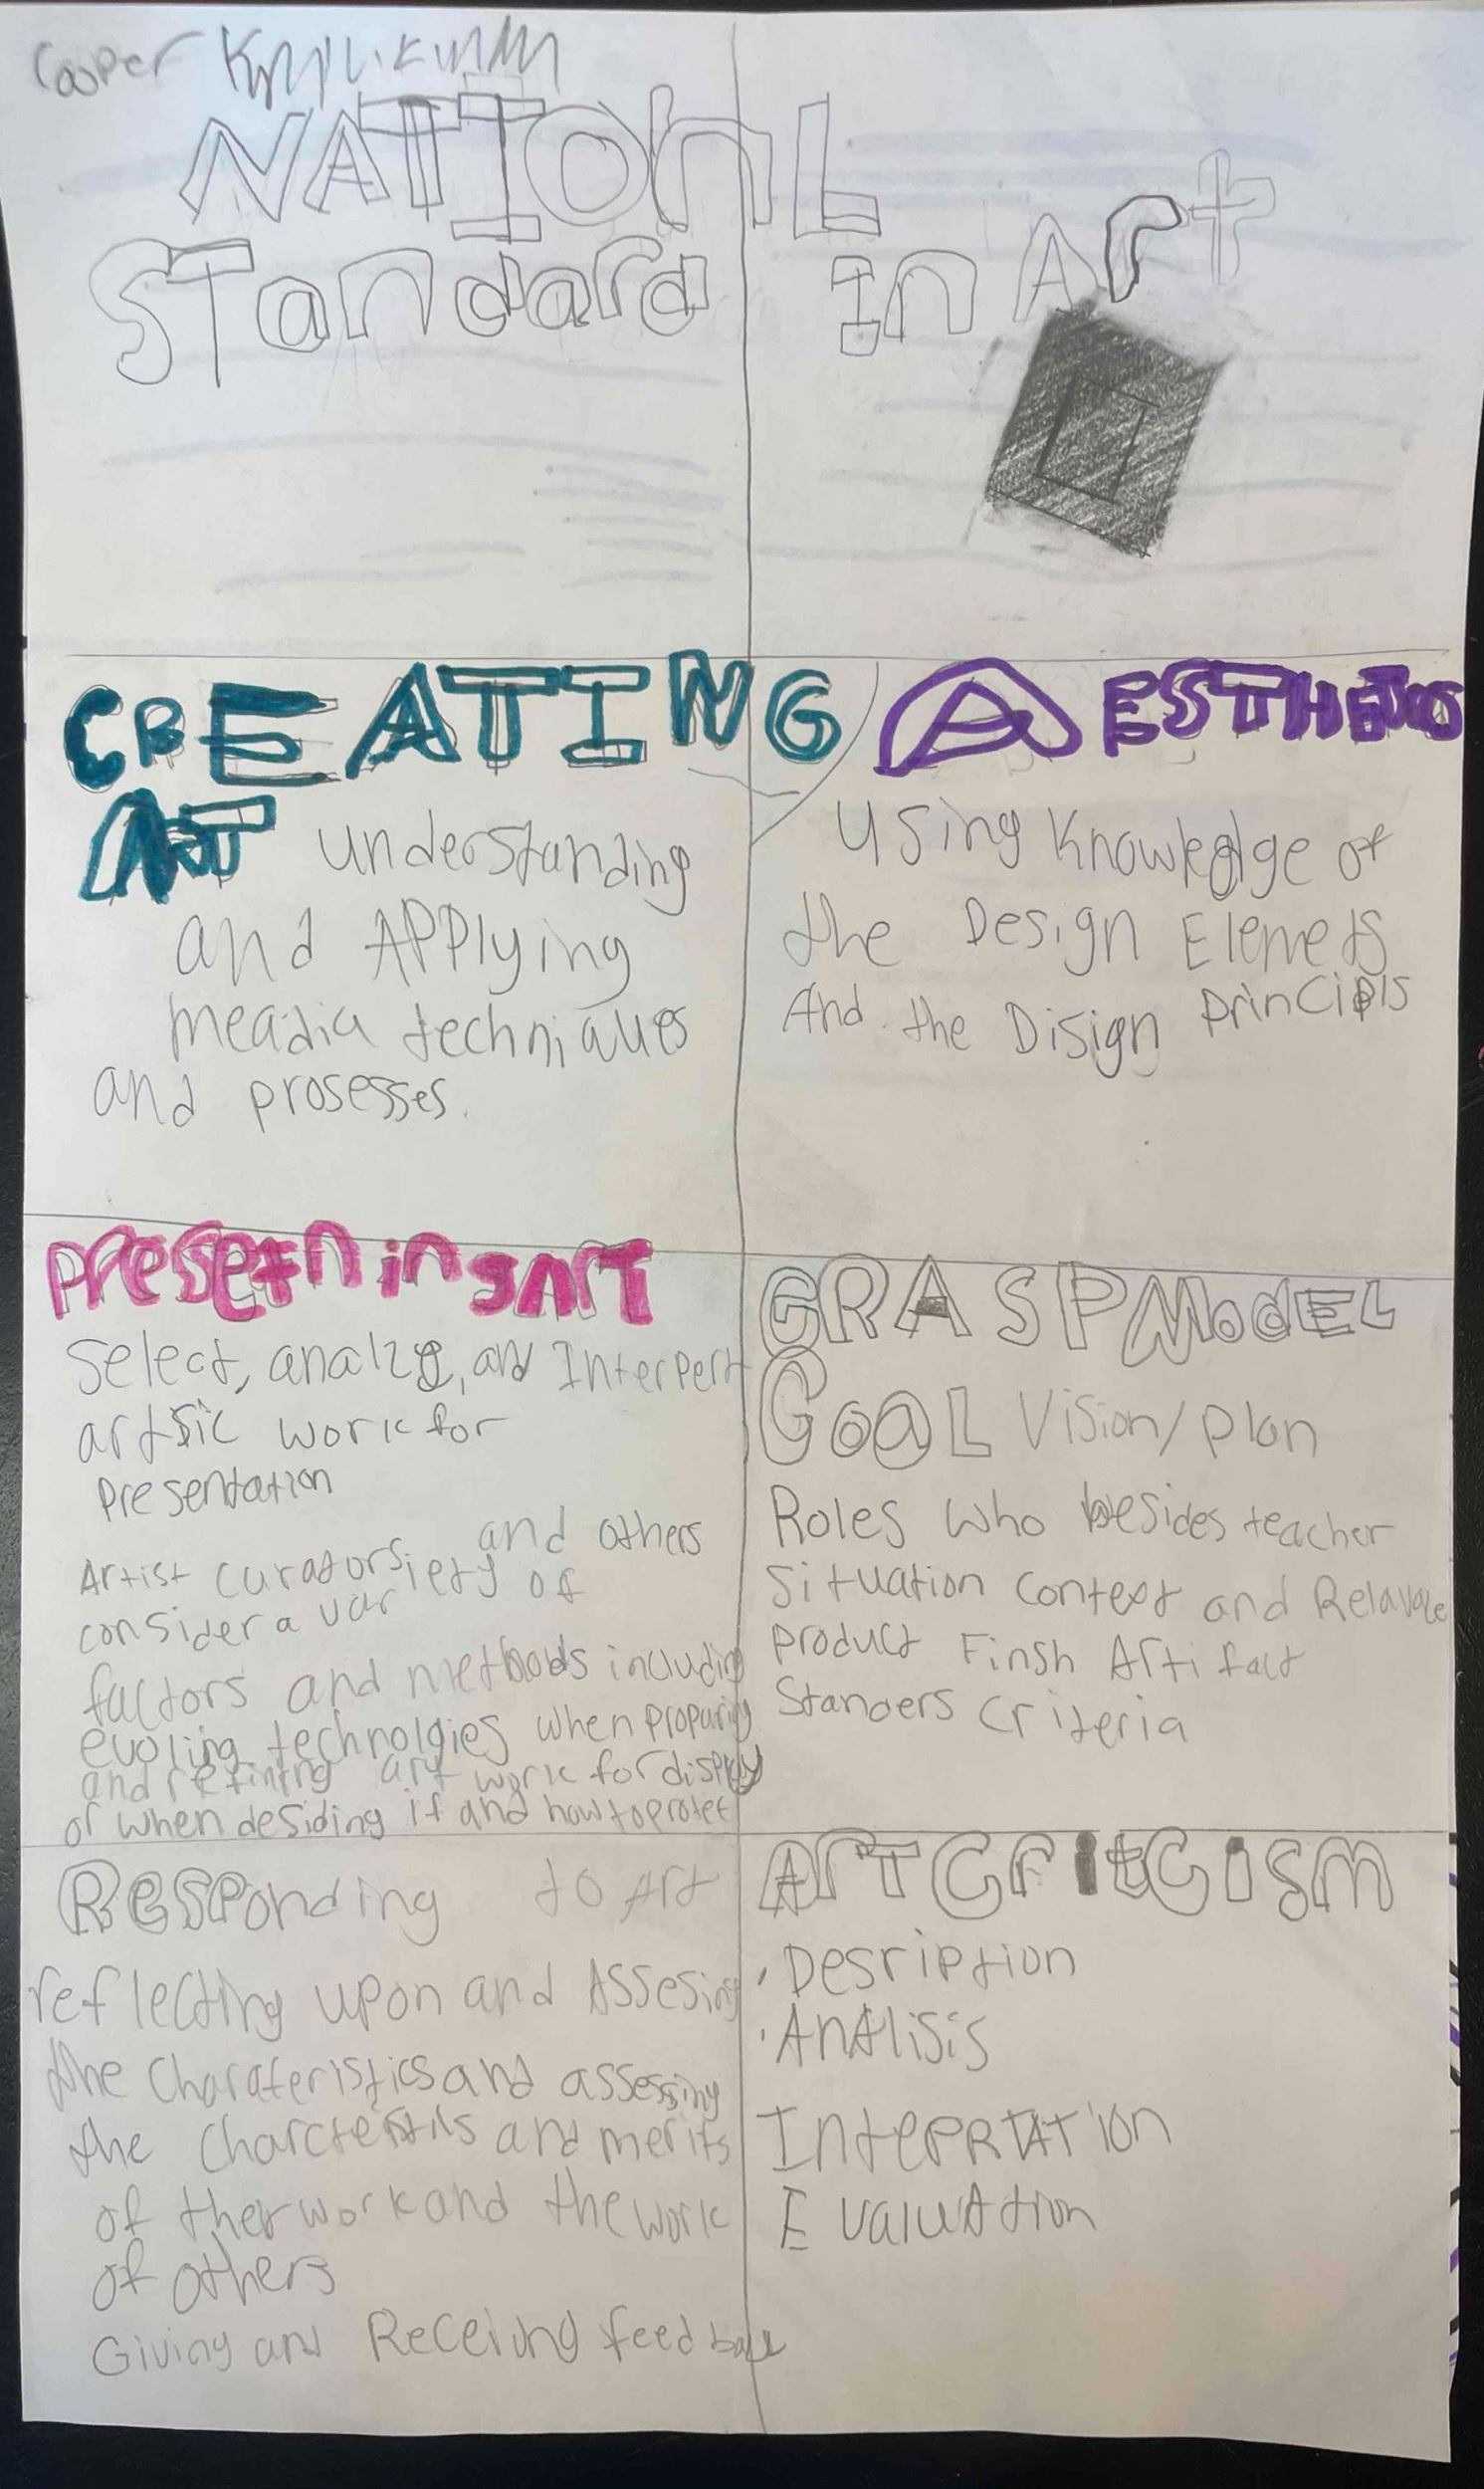 Casper
NATIONL
Standard in Art
CREATING
ART understanding
and Applying
meadia techniques
and prosesses.
AESTHETICS
Using Knowledge of
the Design Elemets
And the Disign Principls
Presetn ing ART
Select, analzye, and Interpert
artsic work for
presentation
Artist curators, and others
consider a variety of
factors and methods including
evoling technolgies when proparing
and refining art work for display
or when desiding if and how to protet
GRASP Model
Goal Vision/plan
Roles who besides teacher
Situation context and
product Finsh Artifact
Standers criteria
Responding to Art
reflecting upon and Assesing
the Charateristics and assessing
the and merits
of ther work and the work
of others
Giving and Receiving feedback
Art Critcism
· Desription
· Analisis
Inteprtation
Evaluation